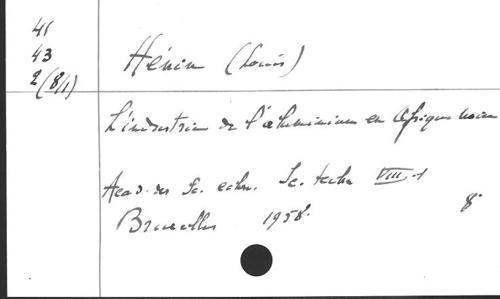 41
43
2(8/1)
Hénin (Louis)
L'industrie de l'aluminium en Afrique noire
Acad. des Sc. Sc. techn VIII-1
Bruxelles 1958. 8°